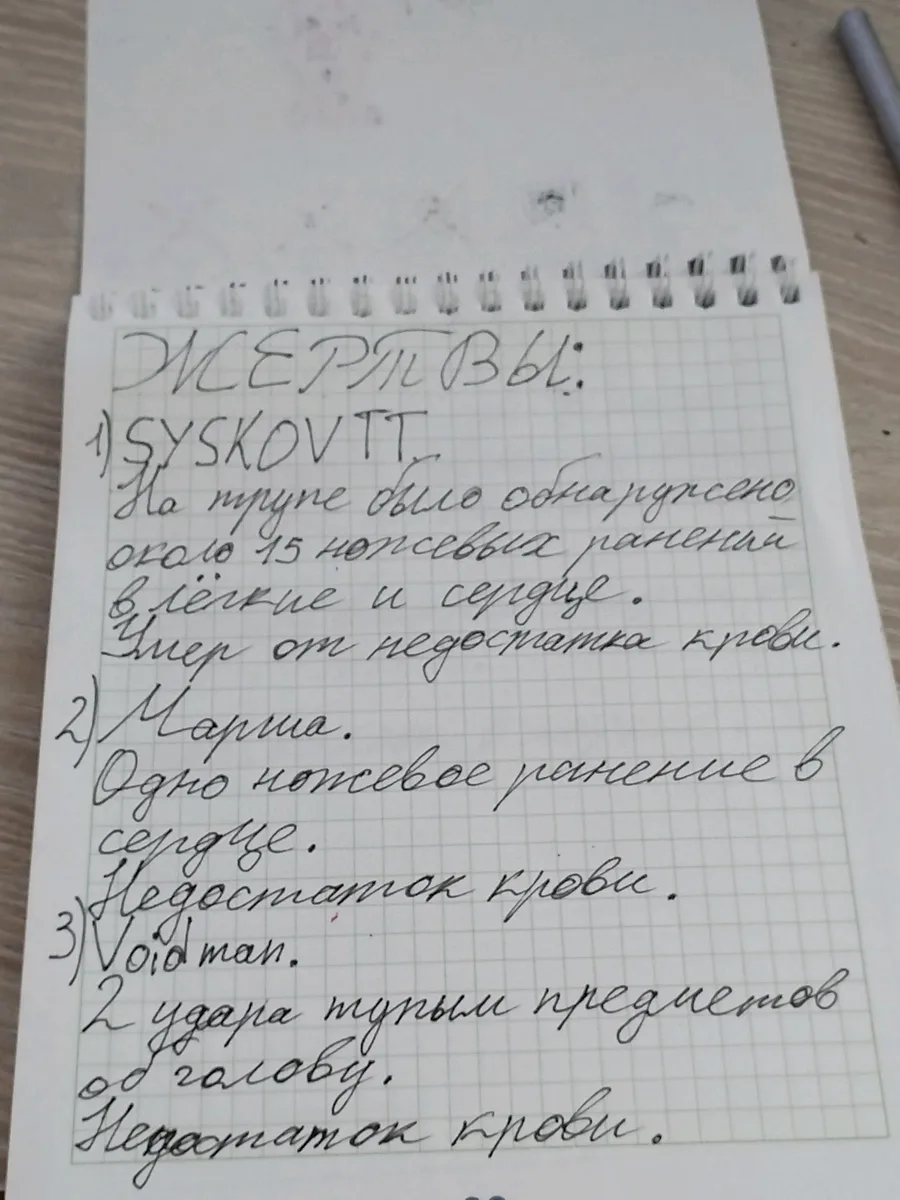 ЖЕРТВЫ:
1) SYSKOVTT.
На трупе было обнаружено
около 15 ножевых ранений
в лёгкие и сердце.
Умер от недостатка крови.
2) Марша.
Одно ножевое ранение в
сердце.
Недостаток крови.
3) Voidman.
2 удара тупым предметов
об голову.
Недостаток крови.